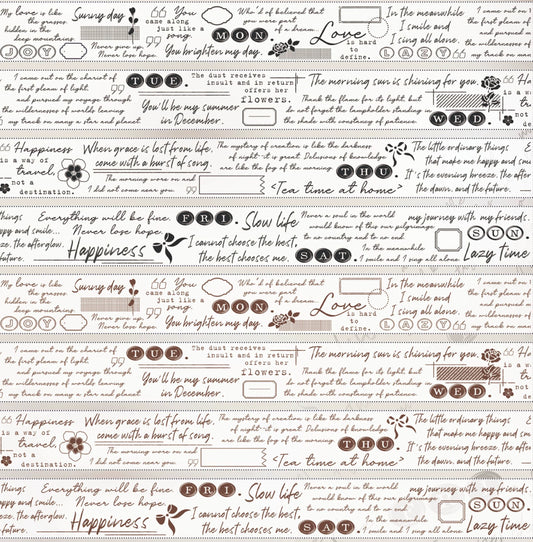 My love is like
the grasses
hidden in the
deep mountains
Sunny day
JOY
Never give up,
Never lose hope.
You
came along
just like a
song.
You brighten my day.
MON
Who'd of believed that
you were part
of a dream.
Love
is hard
to
define.
In the meanwhile
I smile and
I sing all alone.
LAZY
I came out on the chariot of
the first gleam of light,
and pursued my voyage through
the wildernesses of worlds leaving
my track on many a star and planet.
TUE
You'll be my summer
in December.
The dust receives
insult and in return
offers her
flowers.
The morning sun is shining for you.
Thank the flame for its light, but
do not forget the lampholder standing in
the shade with constancy of patience.
WED
Happiness
is a way of
travel,
not a
destination.
When grace is lost from life,
come with a burst of song.
The morning wore on and
I did not come near you.
The mystery of creation is like the darkness
of night-it is great. Delusions of knowledge
are like the fog of the morning.
THU
<Tea time at home>
The little ordinary things
that make me happy and smile
It's the evening breeze, the afterglow,
the dawn, and the future.
things
happy and smile...
breeze, the afterglow,
future.
Everything will be fine.
Never lose hope.
Happiness
FRI
Slow life
I cannot choose the best,
the best chooses me.
SAT
Never a soul in the world
would know of this our pilgrimage
to no country and to no end.
In the meanwhile
I smile and I sing all alone
my journey with my friends.
SUN
Lazy time
My love is like
the grasses
hidden in the
deep mountains
Sunny day
JOY
Never give up,
Never lose hope.
You
came along
just like a
song.
You brighten my day.
MON
Who'd of believed that
you were part
of a dream.
Love
is hard
to
define.
In the meanwhile
I smile and
I sing all alone.
LAZY
I came out on the chariot of
the first gleam of light,
and pursued my voyage through
the wildernesses of worlds leaving
my track on many a star and planet.
TUE
You'll be my summer
in December.
The dust receives
insult and in return
offers her
flowers.
The morning sun is shining for you.
Thank the flame for its light, but
do not forget the lampholder standing in
the shade with constancy of patience.
WED
Happiness
is a way of
travel,
not a
destination.
When grace is lost from life,
come with a burst of song.
The morning wore on and
I did not come near you.
The mystery of creation is like the darkness
of night-it is great. Delusions of knowledge
are like the fog of the morning.
THU
<Tea time at home>
The little ordinary things
that make me happy and smile
It's the evening breeze, the afterglow,
the dawn, and the future.
things
happy and smile...
breeze, the afterglow,
future.
Everything will be fine.
Never lose hope.
Happiness
FRI
Slow life
I cannot choose the best,
the best chooses me.
SAT
Never a soul in the world
would know of this our pilgrimage
to no country and to no end.
In the meanwhile
I smile and I sing all alone
my journey with my friends.
SUN
Lazy time